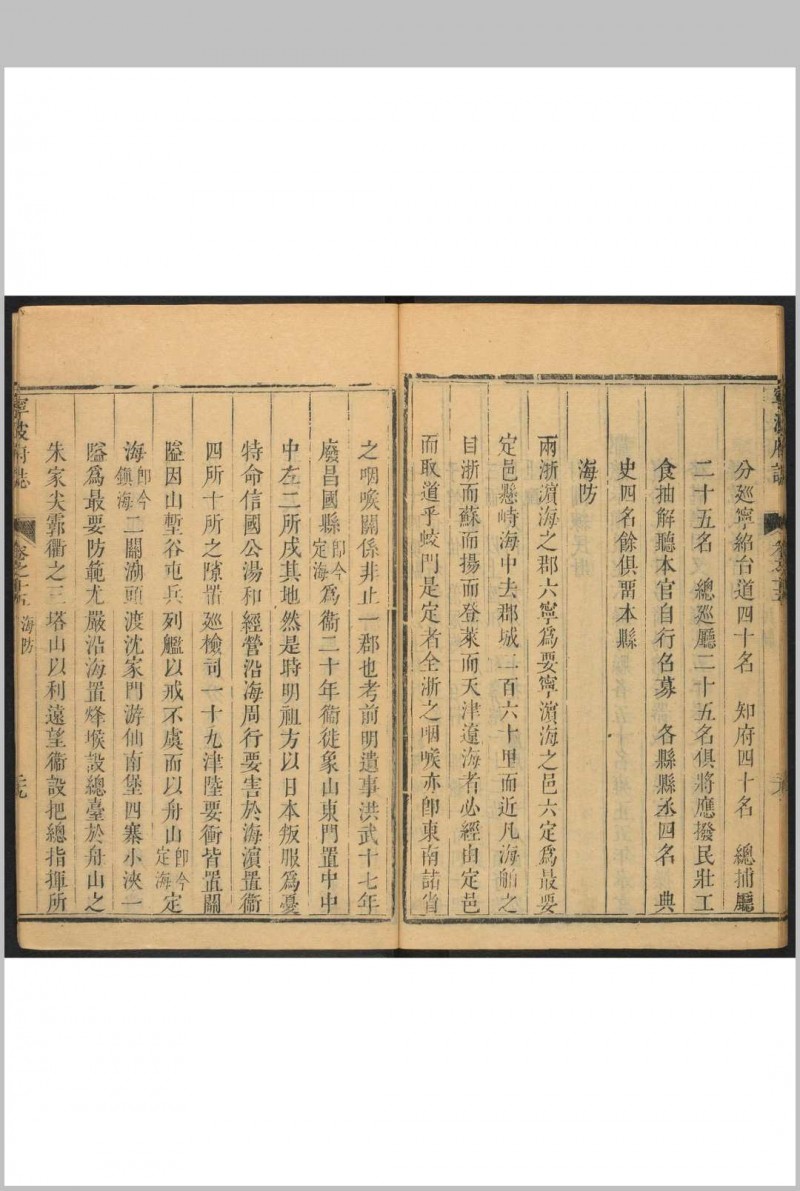 分巡寧紹台道四十名　知府四十名　總捕廳
二十五名　總巡廳二十五名俱將應撥民壯工
食抽解聽本官自行名募　各縣縣丞四名　典
史四名餘俱畱本縣
海防
兩浙濵海之郡六寧爲要寧濵海之邑六定爲最要
定邑懸峙海中去郡城二百六十里而近凡海舶之
目浙而蘇而揚而登萊而天津遼海者必經由定邑
而取道乎蛟門是定者全浙之咽喉亦卽東南諸省
之咽喉關係非止一郡也考前明遺事洪武十七年
廢昌國縣卽今定海爲衞二十年衞徙象山東門置中中
中左二所戍其地然是時明祖方以日本叛服爲憂
特命信國公湯和經營沿海周行要害於海濵置衞
四所十所之隙置廵檢司一十九津陸要衝皆置關
隘因山塹谷屯兵列艦以戒不虞而以舟山卽今定海定
海卽今鎮海二關湖頭渡沈家門游仙南堡四寨小浹一
隘爲最要防範尤嚴沿海置烽堠設總臺於舟山之
朱家尖霩衢之三塔山以利遠望衞設把總指揮所
寧波府誌
卷之十五
海防